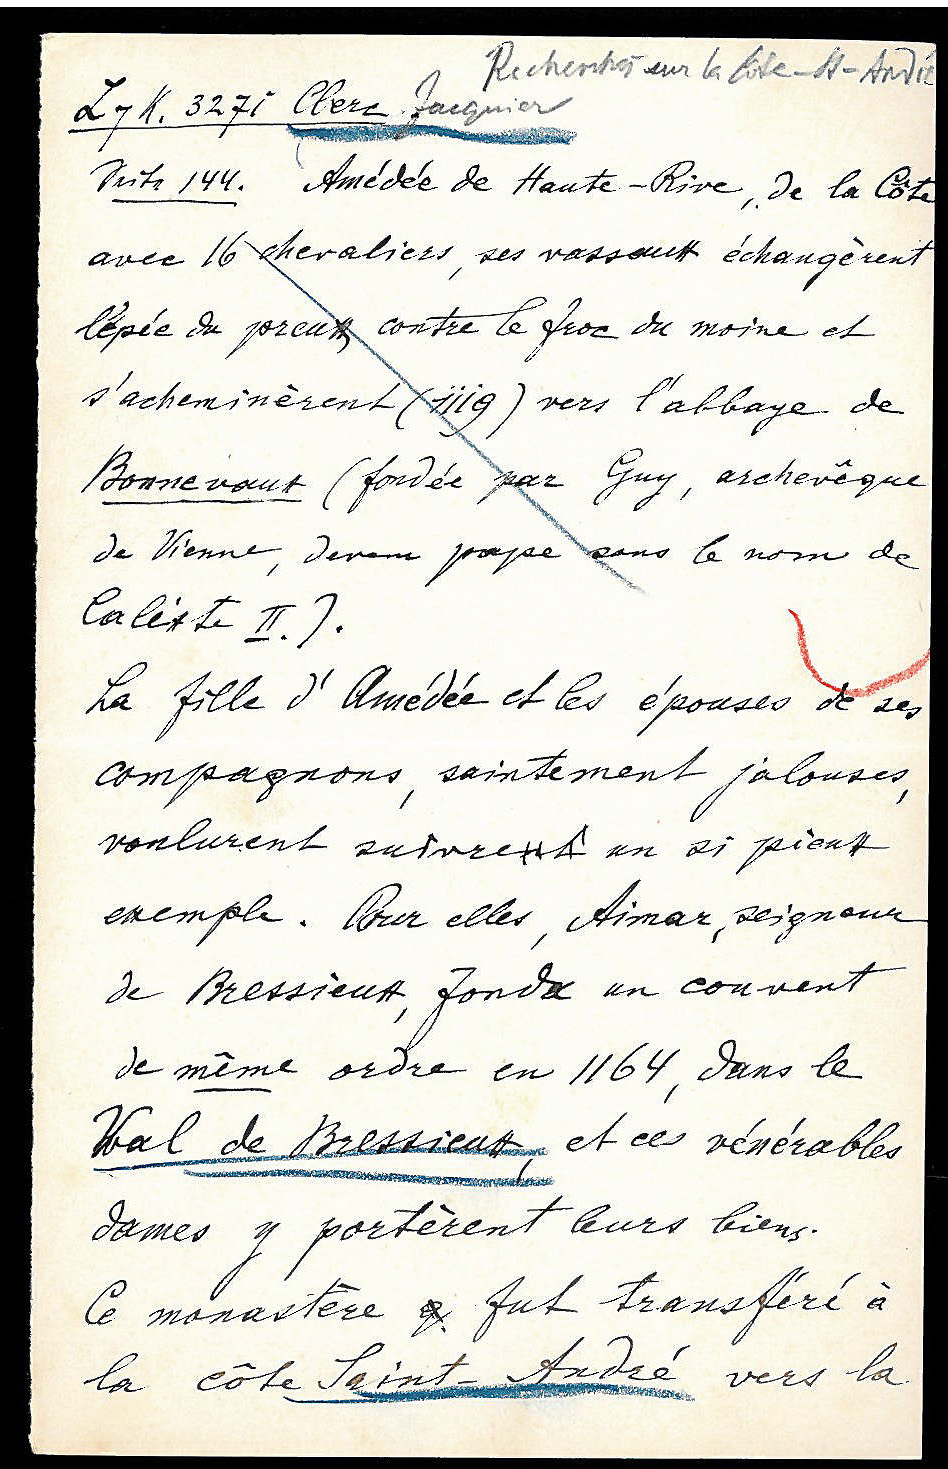 Recherches sur la Côte-St-André
L 7 K. 3271 Clerc Jacquier
144. Amédée de Haute-Rive, de la Côte
avec 16 chevaliers, ses vassaux échangèrent
l'épée du preux contre le froc du moine et
s'acheminèrent (1119) vers l'abbaye de
Bonnevaux (fondée par Guy, archevêque
de Vienne, devenu pape sous le nom de
Calixte II.).
La fille d'Amédée et les épouses de ses
compagnons, saintement jalouses,
voulurent suivre un si pieux
exemple. Pour elles, Aimar, seigneur
de Bressieux, fonda un couvent
de même ordre en 1164, dans le
Val de Bressieux, et ces vénérables
dames y portèrent leurs biens.
Ce monastère fut transféré à
la côte Saint-André vers la